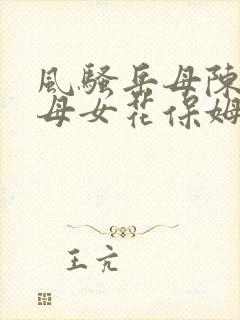 風騷岳母陳
母女花保姆
王亢